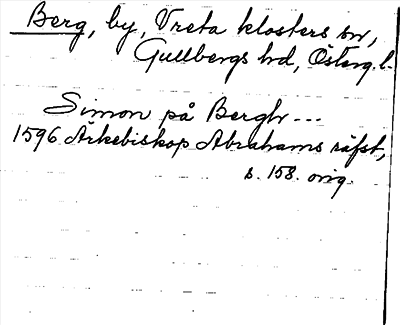 Berg, by, Vreta klosters sn,
Gullbergs hd, Österg. l.
Simon på Bergh ---
1596 Ärkebiskop Abrahams räfst,
s. 158. orig.